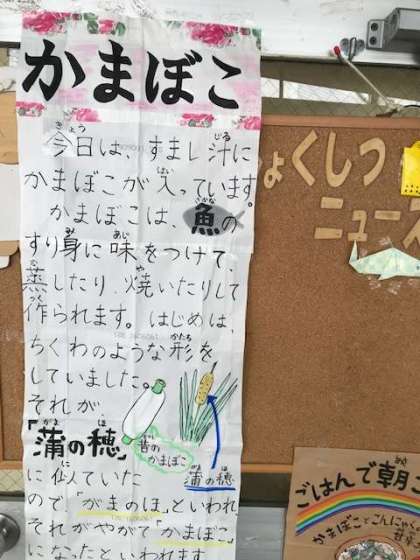 かまぼこ
今日は、すまし汁に
かまぼこが入っています。
かまぼこは、魚の
すり身に味をつけて、
蒸したり、焼いたりして
作られます。はじめは、
ちくわのような形を
していました。
それが
「蒲の穂」
昔の
かまぼこ
蒲の穂
に似ていた
ので、「がまのほ」といわれ
それがやがて「かまぼこ」
になったといわれます
くしつ
ニュース
ごはんで朝ご
かまぼことこんにゃく